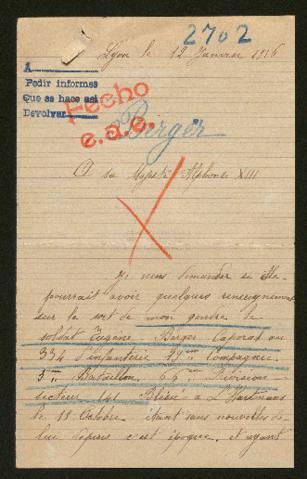 2702
Lyon le 12 Janvier 1916
A
Pedir informes
Que se hace asi
Devolver
Fecho
e.a.e.
Berger
A sa Majesté Alphonse XIII
Je viens demander si
pourrait avoir quelques renseignements
sur le sort de mon gendre le
soldat Eugène Berger Caporal au
334 d'infanterie 19me Compagnie
5me Bataillon Division
secteur 141 Blessé a L'Hartmans
le 15 Octobre étant sans nouvelles de
lui depuis c'est époque. et ayant